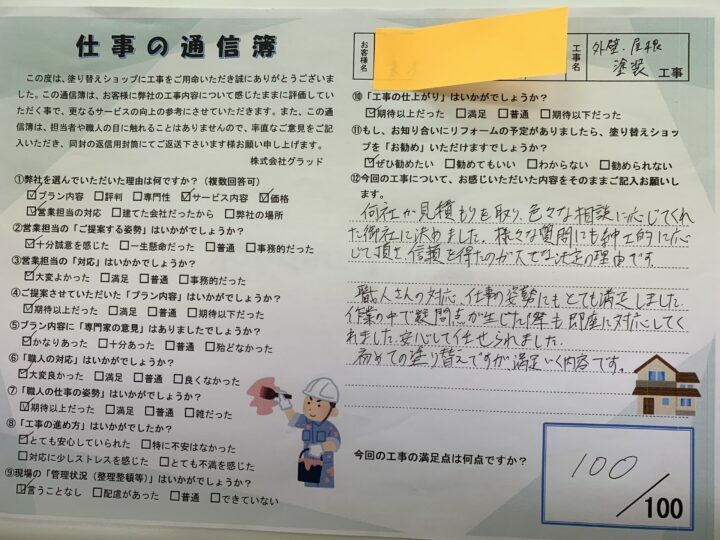 仕事の通信簿
この度は、塗り替えショップに工事をご用命いただき誠にありがとうございま
した。この通信簿は、お客様に弊社の工事内容について感じたままに評価してい
ただく事で、更なるサービスの向上の参考にさせていただきます。また、この通信
簿は、担当者や職人の目に触れることはありませんので、率直なご意見をご記
入いただき、同封の返信用封筒にてご返送下さいます様お願い申し上げます。
株式会社グラッド
①弊社を選んでいただいた理由は何ですか？（複数回答可）
☑プラン内容 □評判 □専門性 ☑サービス内容 ☑価格
☑営業担当の対応 □建てた会社だったから □弊社の場所
②営業担当の「ご提案する姿勢」はいかがでしょうか？
☑十分誠意を感じた □一生懸命だった □普通 □事務的だった
③営業担当の「対応」はいかかでしょうか？
☑大変よかった □満足 □普通 □事務的だった
④ご提案させていただいた「プラン内容」はいかがでしょうか？
☑期待以上だった □満足 □普通 □期待以下だった
⑤プラン内容に「専門家の意見」はありましたでしょうか？
☑かなりあった □十分あった □普通 □殆どなかった
⑥「職人の対応」はいかがでしょうか？
☑大変良かった □満足 □普通 □良くなかった
⑦「職人の仕事の姿勢」はいかがでしょうか？
☑期待以上だった □満足 □普通 □雑だった
⑧「工事の進め方」はいかがでしたか？
☑とても安心していられた □特に不安はなかった
□対応に少しストレスを感じた □とても不満を感じた
⑨現場の「管理状況（整理整頓等）」はいかがでしょうか？
☑言うことなし □配慮があった □普通 □できていない
お客様名
工事名 外壁・屋根
塗装 工事
⑩「工事の仕上がり」はいかがでしょうか？
☑期待以上だった □満足 □普通 □期待以下だった
⑪もし、お知り合いにリフォームの予定がありましたら、塗り替えショッ
プを「お勧め」いただけますでしょうか？
☑ぜひ勧めたい □勧めてもいい □わからない □勧められない
⑫今回の工事について、お感じいただいた内容をそのままご記入お願いし
ます。
何社か見積もりを取り、色々な相談に応じてくれ
た御社に決めました。様々な質問にも紳士的に応
じて頂き、信頼を得たのが大きな決定の理由です。
職人さんの対応、仕事の姿勢にもとても満足しました。
作業の中で疑問点が生じた際も即座に対応してく
れました。安心して任せられました。
初めての塗り替えですが満足いく内容です。
今回の工事の満足点は何点ですか？
100
/100